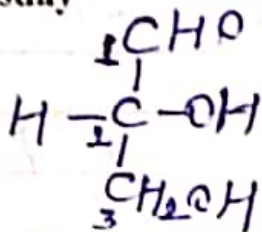 1CHO
H-C-OH
2
CH2OH
3